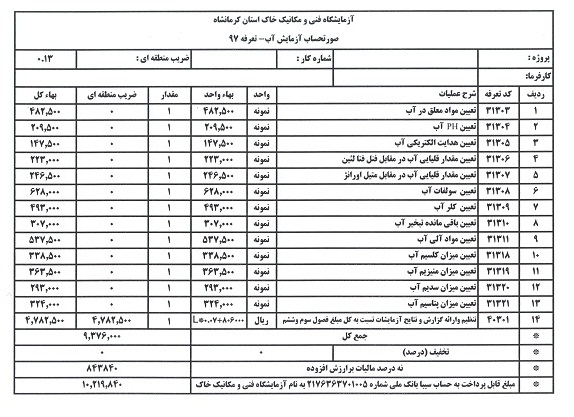 آزمایشگاه فنی و مکانیک خاک استان کرمانشاه
صورتحساب آزمایش آب- تعرفه ۹۷
پروژه : شماره کار : ضریب منطقه ای : ۰.۱۳
کارفرما:
ردیف کد تعرفه شرح عملیات واحد بهاء واحد مقدار ضریب منطقه ای بهاء کل
۱ ۳۱۳۰۳ تعیین مواد معلق در آب نمونه ۴۸۲,۵۰۰ ۱ ۰ ۴۸۲,۵۰۰
۲ ۳۱۳۰۴ تعیین PH آب نمونه ۲۰۹,۵۰۰ ۱ ۰ ۲۰۹,۵۰۰
۳ ۳۱۳۰۵ تعیین هدایت الکتریکی آب نمونه ۱۴۷,۵۰۰ ۱ ۰ ۱۴۷,۵۰۰
۴ ۳۱۳۰۶ تعیین مقدار قلیایی آب در مقابل فنل فتا لئین نمونه ۲۲۳,۰۰۰ ۱ ۰ ۲۲۳,۰۰۰
۵ ۳۱۳۰۷ تعیین مقدار قلیایی آب در مقابل متیل اورانژ نمونه ۲۴۶,۵۰۰ ۱ ۰ ۲۴۶,۵۰۰
۶ ۳۱۳۰۸ تعیین سولفات آب نمونه ۶۲۸,۰۰۰ ۱ ۰ ۶۲۸,۰۰۰
۷ ۳۱۳۰۹ تعیین کلر آب نمونه ۴۹۳,۰۰۰ ۱ ۰ ۴۹۳,۰۰۰
۸ ۳۱۳۱۰ تعیین باقی مانده تبخیر آب نمونه ۳۰۷,۰۰۰ ۱ ۰ ۳۰۷,۰۰۰
۹ ۳۱۳۱۱ تعیین مواد آلی آب نمونه ۵۳۷,۵۰۰ ۱ ۰ ۵۳۷,۵۰۰
۱۰ ۳۱۳۱۸ تعیین میزان کلسیم آب نمونه ۳۳۸,۵۰۰ ۱ ۰ ۳۳۸,۵۰۰
۱۱ ۳۱۳۱۹ تعیین میزان منیزیم آب نمونه ۳۶۳,۵۰۰ ۱ ۰ ۳۶۳,۵۰۰
۱۲ ۳۱۳۲۰ تعیین میزان سدیم آب نمونه ۲۹۳,۰۰۰ ۱ ۰ ۲۹۳,۰۰۰
۱۳ ۳۱۳۲۱ تعیین میزان پتاسیم آب نمونه ۳۲۴,۰۰۰ ۱ ۰ ۳۲۴,۰۰۰
۱۴ ۴۰۳۰۱ تنظیم وارائه گزارش و نتایج آزمایشات نسبت به کل مبلغ فصول سوم وششم ریال L*۰.۰۷+۸۰۶۰۰۰ ۱ ۴,۷۸۲,۵۰۰ ۴,۷۸۲,۵۰۰
* جمع کل ۹,۳۷۶,۰۰۰
* تخفیف (درصد) ۰ ۰
* نه درصد مالیات بر ارزش افزوده ۸۴۳۸۴۰
* مبلغ قابل پرداخت به حساب سیبا بانک ملی شماره ۲۱۷۶۳۶۳۷۰۱۰۰۵ به نام آزمایشگاه فنی و مکانیک خاک ۱۰,۲۱۹,۸۴۰